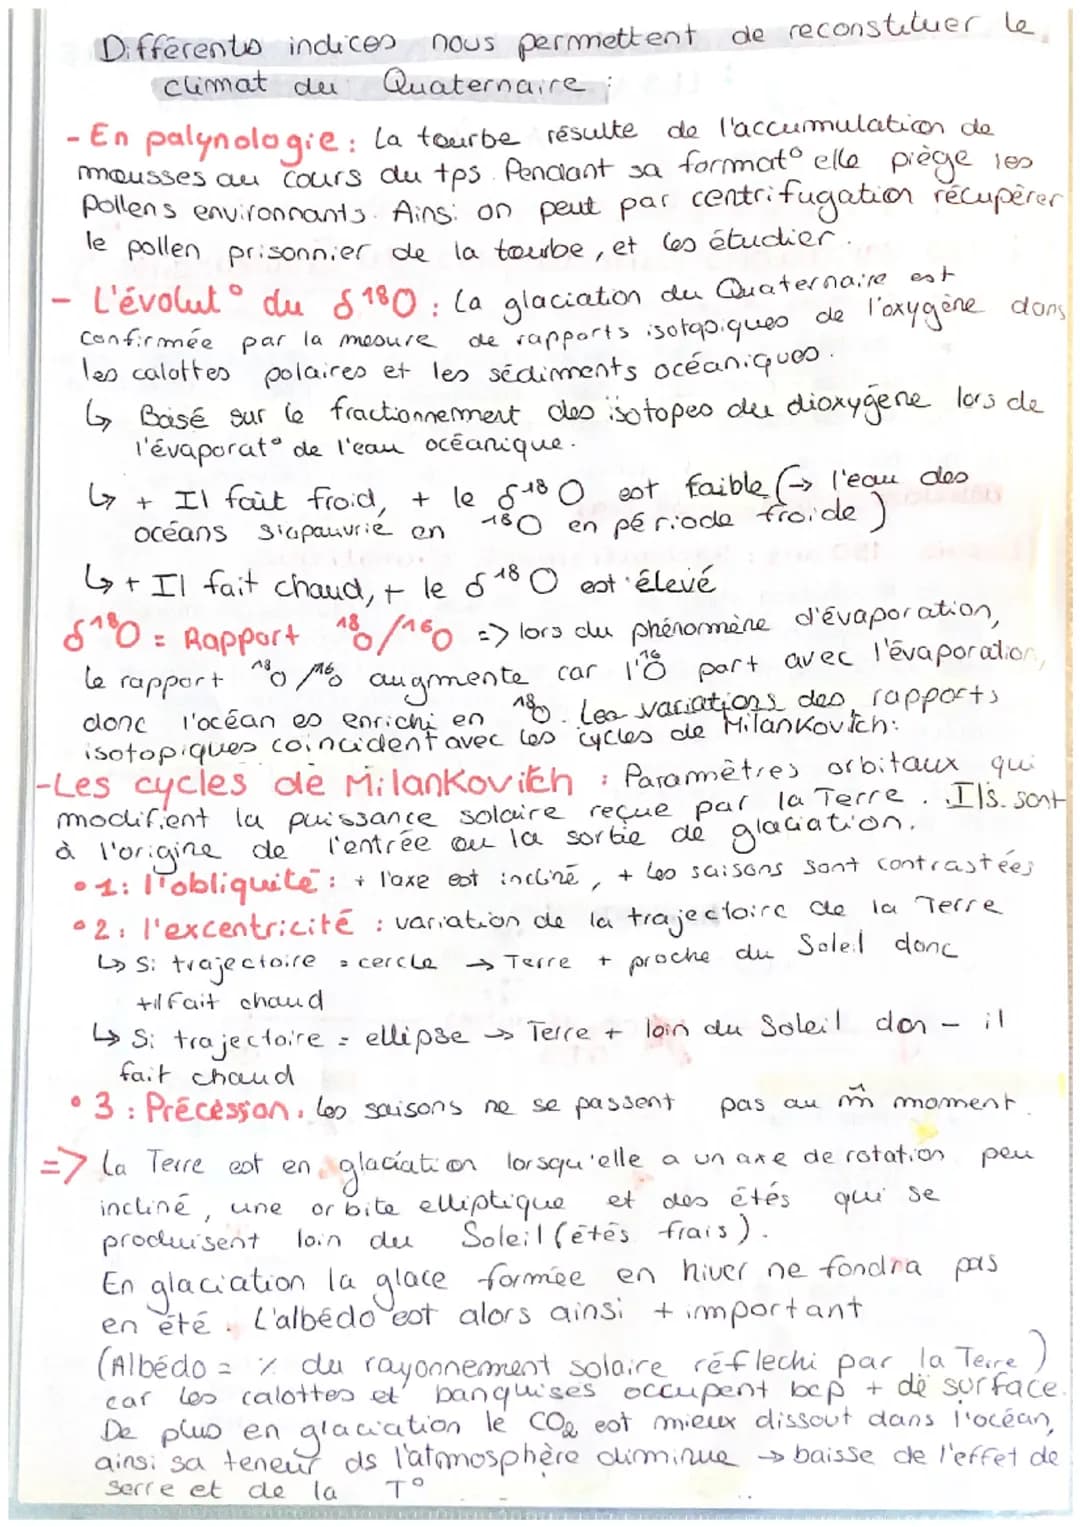 Différents indices nous permettent de reconstituer le
climat du Quaternaire :
- En palynologie : La tourbe résulte de l'accumulation de
mousses au cours du tps. Pendant sa format° elle piège les
pollens environnants. Ainsi on peut par centrifugation récupérer
le pollen prisonnier de la tourbe, et les étudier.
- L'évolut° du δ18O : La glaciation du Quaternaire est
confirmée par la mesure de rapports isotopiques de l'oxygène dans
les calottes polaires et les sédiments océaniques.
↳ Basé sur le fractionnement des isotopes du dioxygène lors de
l'évaporat° de l'eau océanique.
↳ + Il fait froid, + le δ18O est faible (→ l'eau des
océans s'appauvrie en 18O en période froide)
↳ + Il fait chaud, + le δ18O est élevé
δ18O = Rapport 18O/16O => lors du phénomène d'évaporation,
le rapport 18O/16O augmente car l'16O part avec l'évaporation,
donc l'océan es enrichi en 18O. Les variations des rapports
isotopiques coincident avec les cycles de Milankovitch:
-Les cycles de Milankovitch : Paramètres orbitaux qui
modifient la puissance solaire reçue par la Terre. Ils sont
à l'origine de l'entrée ou la sortie de glaciation.
• 1: l'obliquité : + l'axe est incliné, + les saisons sont contrastées
• 2: l'excentricité : variation de la trajectoire de la Terre
↳ Si trajectoire = cercle → Terre + proche du Soleil donc
+il fait chaud
↳ Si trajectoire = ellipse → Terre + loin du Soleil don - il
fait chaud
• 3 : Précession. les saisons ne se passent pas au m̂ moment.
=> La Terre est en glaciation lorsqu'elle a un axe de rotation peu
incliné, une orbite elliptique et des étés qui se
produisent loin du Soleil (étés frais).
En glaciation la glace formée en hiver ne fondra pas
en été. L'albédo est alors ainsi + important
(Albédo = % du rayonnement solaire réflechi par la Terre)
car les calottes et banquises occupent bcp + de surface.
De plus en glaciation le CO2 est mieux dissout dans l'océan,
ainsi sa teneur ds l'atmosphère diminue → baisse de l'effet de
serre et de la T°